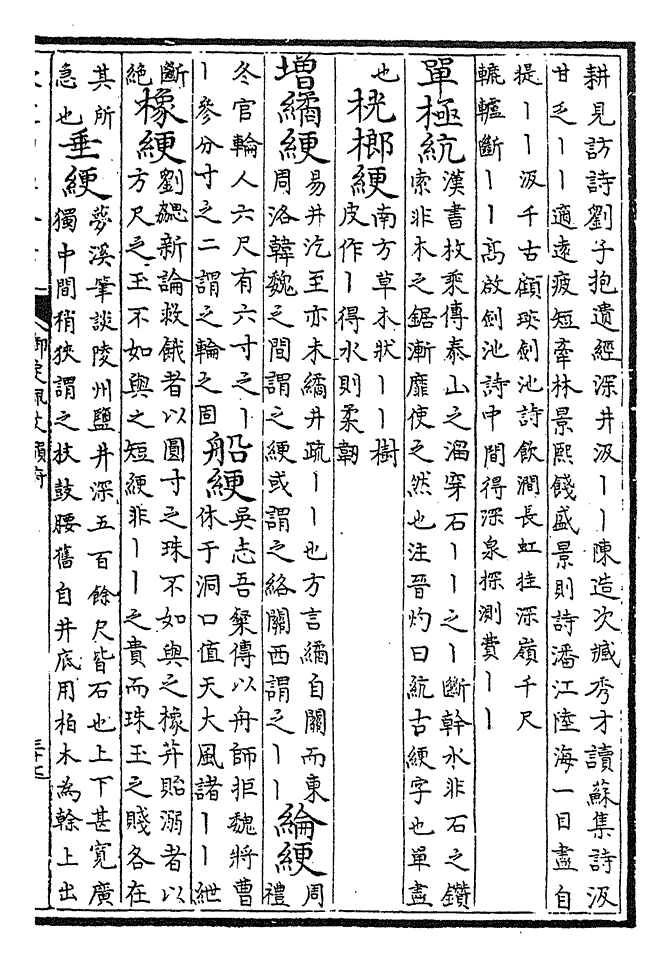 耕見訪詩劉子抱遺經深井汲丨丨陳造次臧秀才讀蘇集詩汲
甘乏丨丨適遠疲短牽林景熙餞盛景則詩潘江陸海一日盡自
提丨丨汲千古顧瑛劍池詩飲澗長虹挂深嶺千尺
轆轤斷丨丨高啟劍池詩中間得深泉探測費丨丨
單極統
漢書枚乘傳泰山之溜穿石丨丨之丨斷幹水非石之鑽
索非木之鋸漸靡使之然也注晉灼曰統古綆字也單盡
也
桄榔綆
南方草木狀丨丨樹
皮作丨得水則柔韌
增繘綆
易井汔至亦未繘井疏丨丨也方言繘自關而東
周洛韓魏之間謂之綆或謂之絡關西謂之丨丨
綸綆
周
禮
冬官輪人六尺有六寸之丨
丨參分寸之二謂之輪之固
船綆
吳志吾粲傳以舟師拒魏將曹
休于洞口值天大風諸丨丨紲
斷
絕
橡綆
劉勰新論救餓者以圓寸之珠不如與之橡并貽溺者以
方尺之玉不如與之短綆非丨丨之貴而珠玉之賤各在
其所
急也
垂綆
夢溪筆談陵州鹽井深五百餘尺皆石也上下甚寬廣
獨中間稍狹謂之杖鼓腰舊自井底用柏木為榦上出
御定佩文韻府
三十七